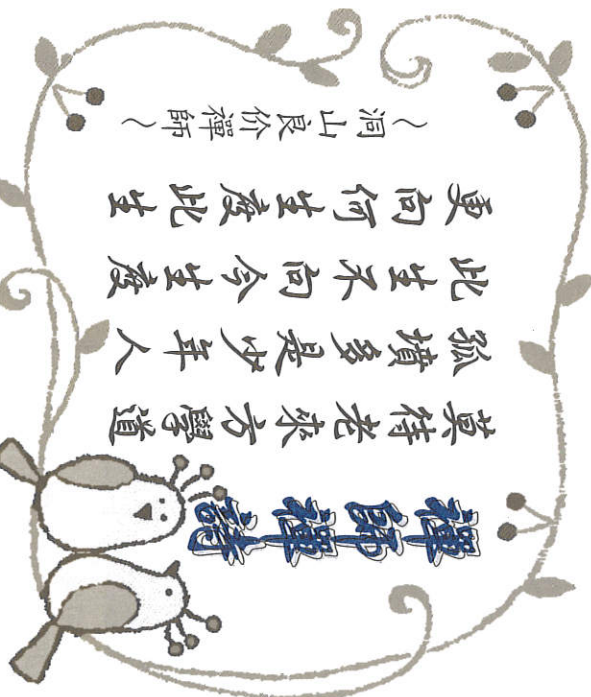 禪師禪詩
莫待老來方學道
孤墳多是少年人
此生不向今生度
更向何生度此生
~洞山良价禪師~